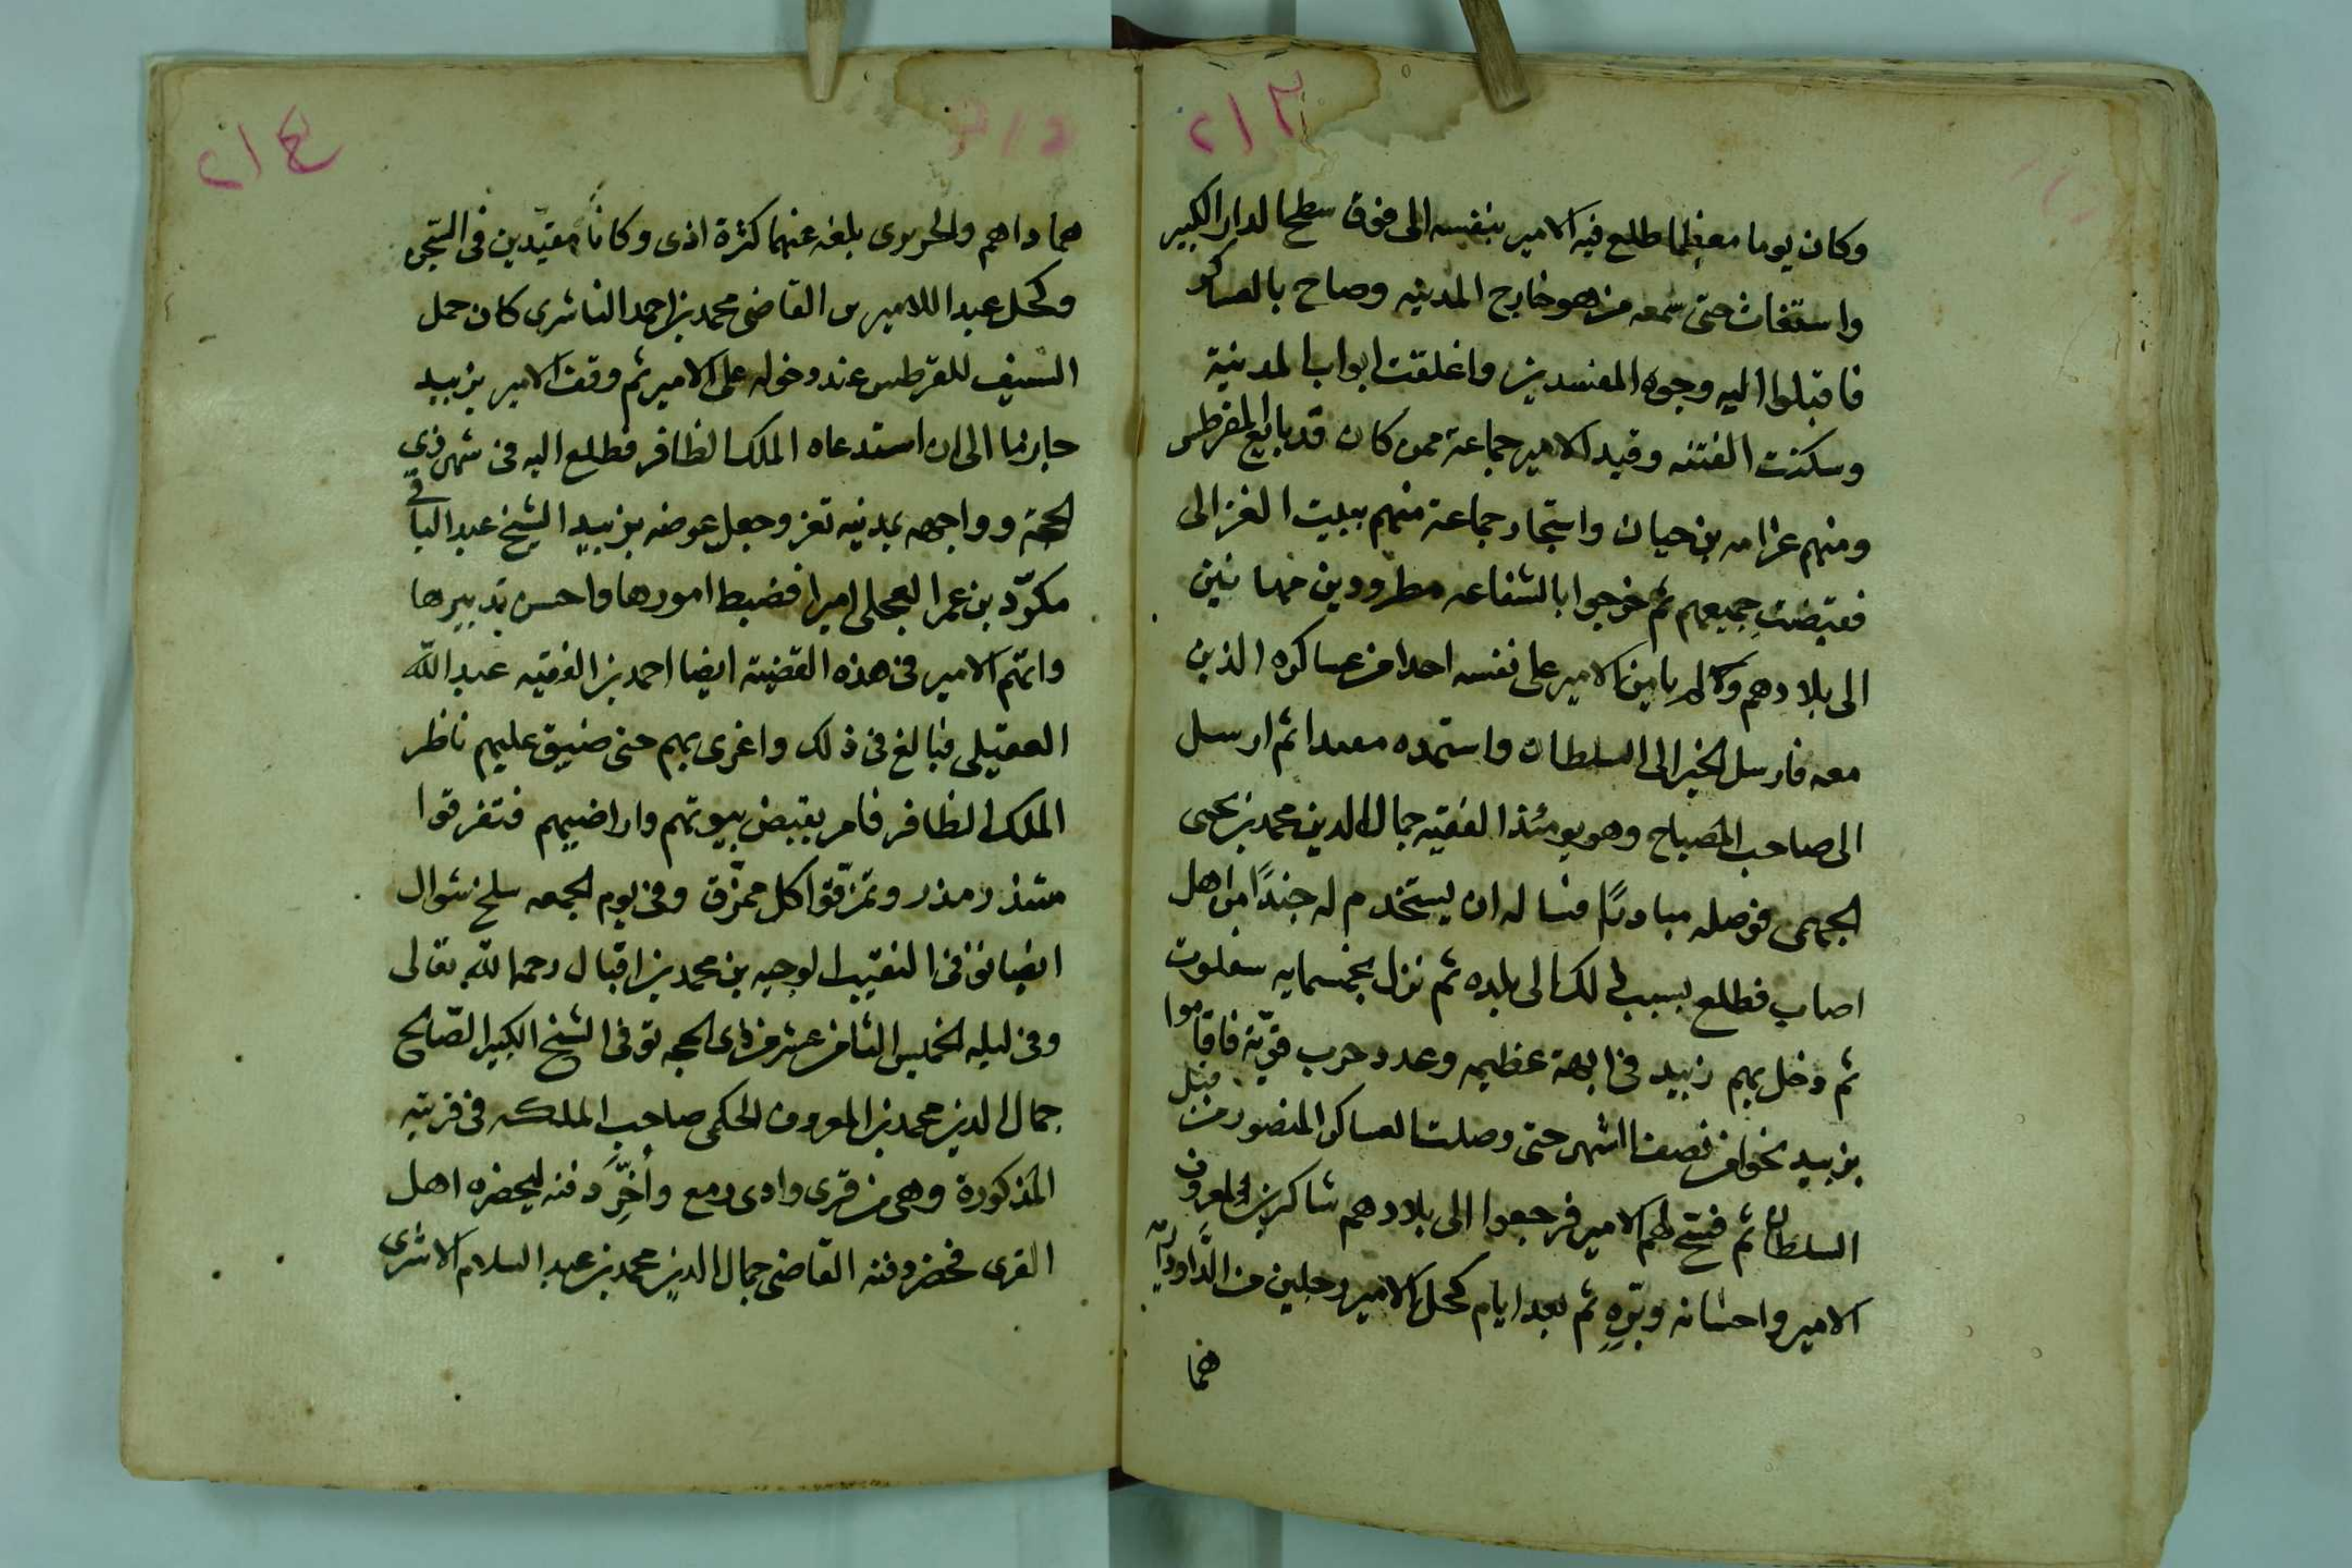 ٢١٣
وكان يوما معظما طلع فيه الامير بنفسه الى فوق سطح الدار الكبير
واستغاث حتى سمعه من هو خارج المدينه وصاح بالعساكر
فاقبلوا اليه وجوه المفسدين واغلقت ابواب المدينة
وسكنت الفتنه وقيد الامير جماعة ممن كان قد بايع القرطبى
ومنهم عزامه بن حيان واستجار جماعة منهم ببيت الغزالى
فقبضت جميعهم ثم خرجوا بالشفاعه مطرودين مهانين
الى بلادهم ولم يامن الامير على نفسه احدا من عساكره الذين
معه فارسل الخبر الى السلطان واستمده ثم ارسل
الى صاحب المصباح وهو يومئذ الفقيه جمال الدين محمد بن يحيى
الجهمى فوصله مبادرًا فساله ان يستخدم له جندًا من اهل
اصاب فطلع بسبب ذلك الى بلده ثم نزل بخمسمايه
ثم دخل بهم زبيد فى ابهة عظيمه وعدد حرب قويّة فاقاموا
بزبيد نحوا من نصف الشهر حتى وصلت العساكر المنصور من قبل
السلطان ثم فسح لهم الامير فرجعوا الى بلادهم شاكرين لمعروف
الامير واحسانه وبرّه ثم بعد ايام كحل الامير رجلين من الداودية
هما
٢١٤
هما داهم والحربوى بلغه عنهما كثرة اذى وكانا مقيّدين فى السّجن
وكحل عبدا للامير بن القاضى محمد بن احمد الناشرى كان حمل
السيف للقرطبى عند دخوله على الامير ثم وقف الامير بزبيد
حازما الى ان استدعاه الملك الظافر فطلع اليه فى شهر ذي
الحجة وواجهه بمدينه تعز وجعل عوضه بزبيد الشيخ عبد الباقى
بن عمر العجلى اميرا فضبط امورها واحسن تدبيرها
واتهم الامير فى هذه القضية ايضا احمد بن الفقيه عبد الله
العقيلى فبالغ فى ذلك واغرى بهم حتى ضيق عليهم ناظر
الملك الظافر فامر بقبض بيوتهم واراضيهم فتفرقوا
شذر مذر وتمزّقوا كل ممزّق وفى يوم الجمعه سلخ شوال
ايضا توفى النقيب الوجيه بن محمد بن اقبال رحمه الله تعالى
وفى ليله الخميس الثامن عشر من ذى الحجه توفى الشيخ الكبير الصّالح
جمال الدين محمد بن المعروف الحكمى صاحب الملكه فى قريته
المذكورة وهى من قرى وادى رمع وأُخِّرَ دفنه ليحضره اهل
القرى فحضر دفنه القاضى جمال الدين محمد بن عبد السلام الناشرى